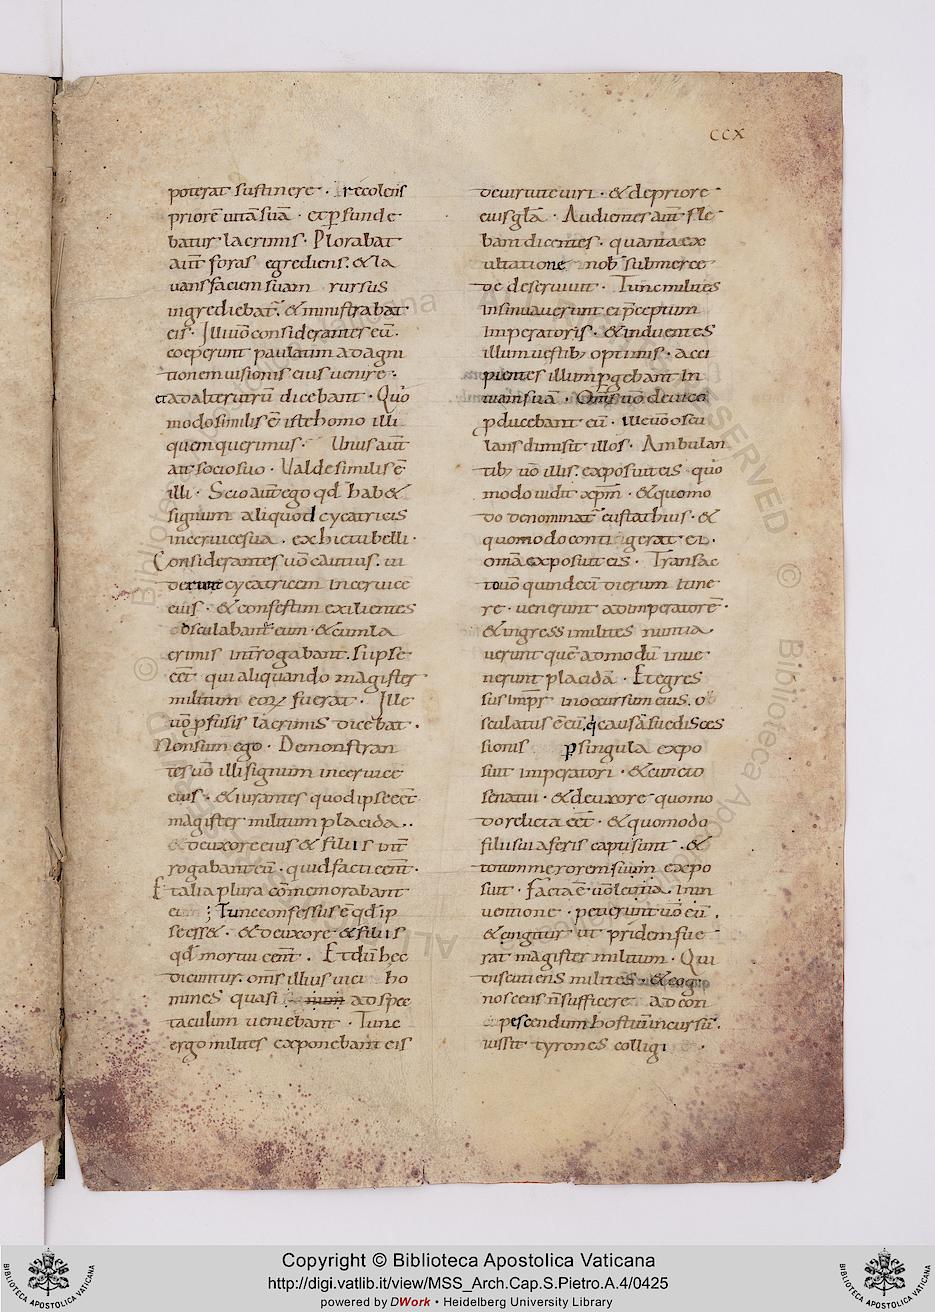 CCX
poterat sustinere · recolens
priorē uitā suā · et ꝑfunde
batur lacrimis · Plorabat
aūt foras egrediens · & la
uans faciem suam rursus
ingrediebat̄ · & ministrabat
eis · Illi uō considerantes eū ·
coeperunt paulatim ad agni
tionem uisionis eius uenire ·
et ad alterutrū dicebant · Quo
modo similis ē iste homo illi
quem querimus · Unus aūt
ait socio suo · Ualde similis ē
illi · Scio aūt ego qd̄ hab&
signum aliquod cycatricis
in ceruice sua · ex hictu belli ·
Considerantes uō cautius · ui
cycatricem in ceruice
eius · & confestim exilientes
osculabant̄ eum · & cum la
crimis int̄rogabant · si ipse
eēt qui aliquando magister
militum eoꝝ fuerat · Ille
uō ꝑfusis lacrimis dicebat ·
Non sum ego · Demonstran
tes uō illi signum in ceruice
eius · & iurantes quod ipse eēt
magister militum placida ··
& de uxore eius & filiis int̄
rogabant eū · quid facti eēnt ·
Et talia plura cōmemorabant
Tunc confessus ē qd̄ ip
se ess& · & de uxore & filiis
qd̄ mortui eēnt · Et dū hec
dicuntur · om̄s illius uici ho
mines quasi ad spec
taculum ueniebant · Tunc
ergo milites exponebant eis
de uirtute uiri · & de priore
eius gl̄a · Audientes aūt fle
bant dicentes · quanta ex
ultatione nob̄ submerce
de deseruiuit · Tunc milites
insinuauerunt ei p̄ceptum
Imperatoris · & induentes
illum uestib; optimis · acci
pientes illum ꝑgebant in
uiam suā · Om̄s uō de uico
ꝓducebant eū · ille uō oscu
lans dimisit illos · Ambulan
tib; uō illis · exposuit eis quo
modo uidit xp̄m · & quomo
do denominat̄ eustathius · &
quomodo contigerat ei ·
omā exposuit eis · Transac
to uō quindeci dierum itine
re · uenerunt ad imperatorē ·
& ingressi milites nuntia
uerunt quē admodū inue
nerunt placidā · Et egres
sus imp̄r in occursum eius · o
sculatus ē eū · causā sue disces
sionis ꝑ singula expo
suit imperatori · & cuncto
senatui · & de uxore quomo
do relicta eēt · & quomodo
filii sui a feris capti sunt · &
totum merorem suum expo
suit · Facta ē uō letitia · in in
uentione · petierunt uō eū ·
& cingitur ut pridem fue
rat magister militum · Qui
discutiens milites · & cog
noscens n̄ sufficere ad con
pescendum hostiū incursū ·
iussit tyrones colligi ·
Copyright © Biblioteca Apostolica Vaticana
http://digi.vatlib.it/view/MSS_Arch.Cap.S.Pietro.A.4/0425
powered by DWork • Heidelberg University Library